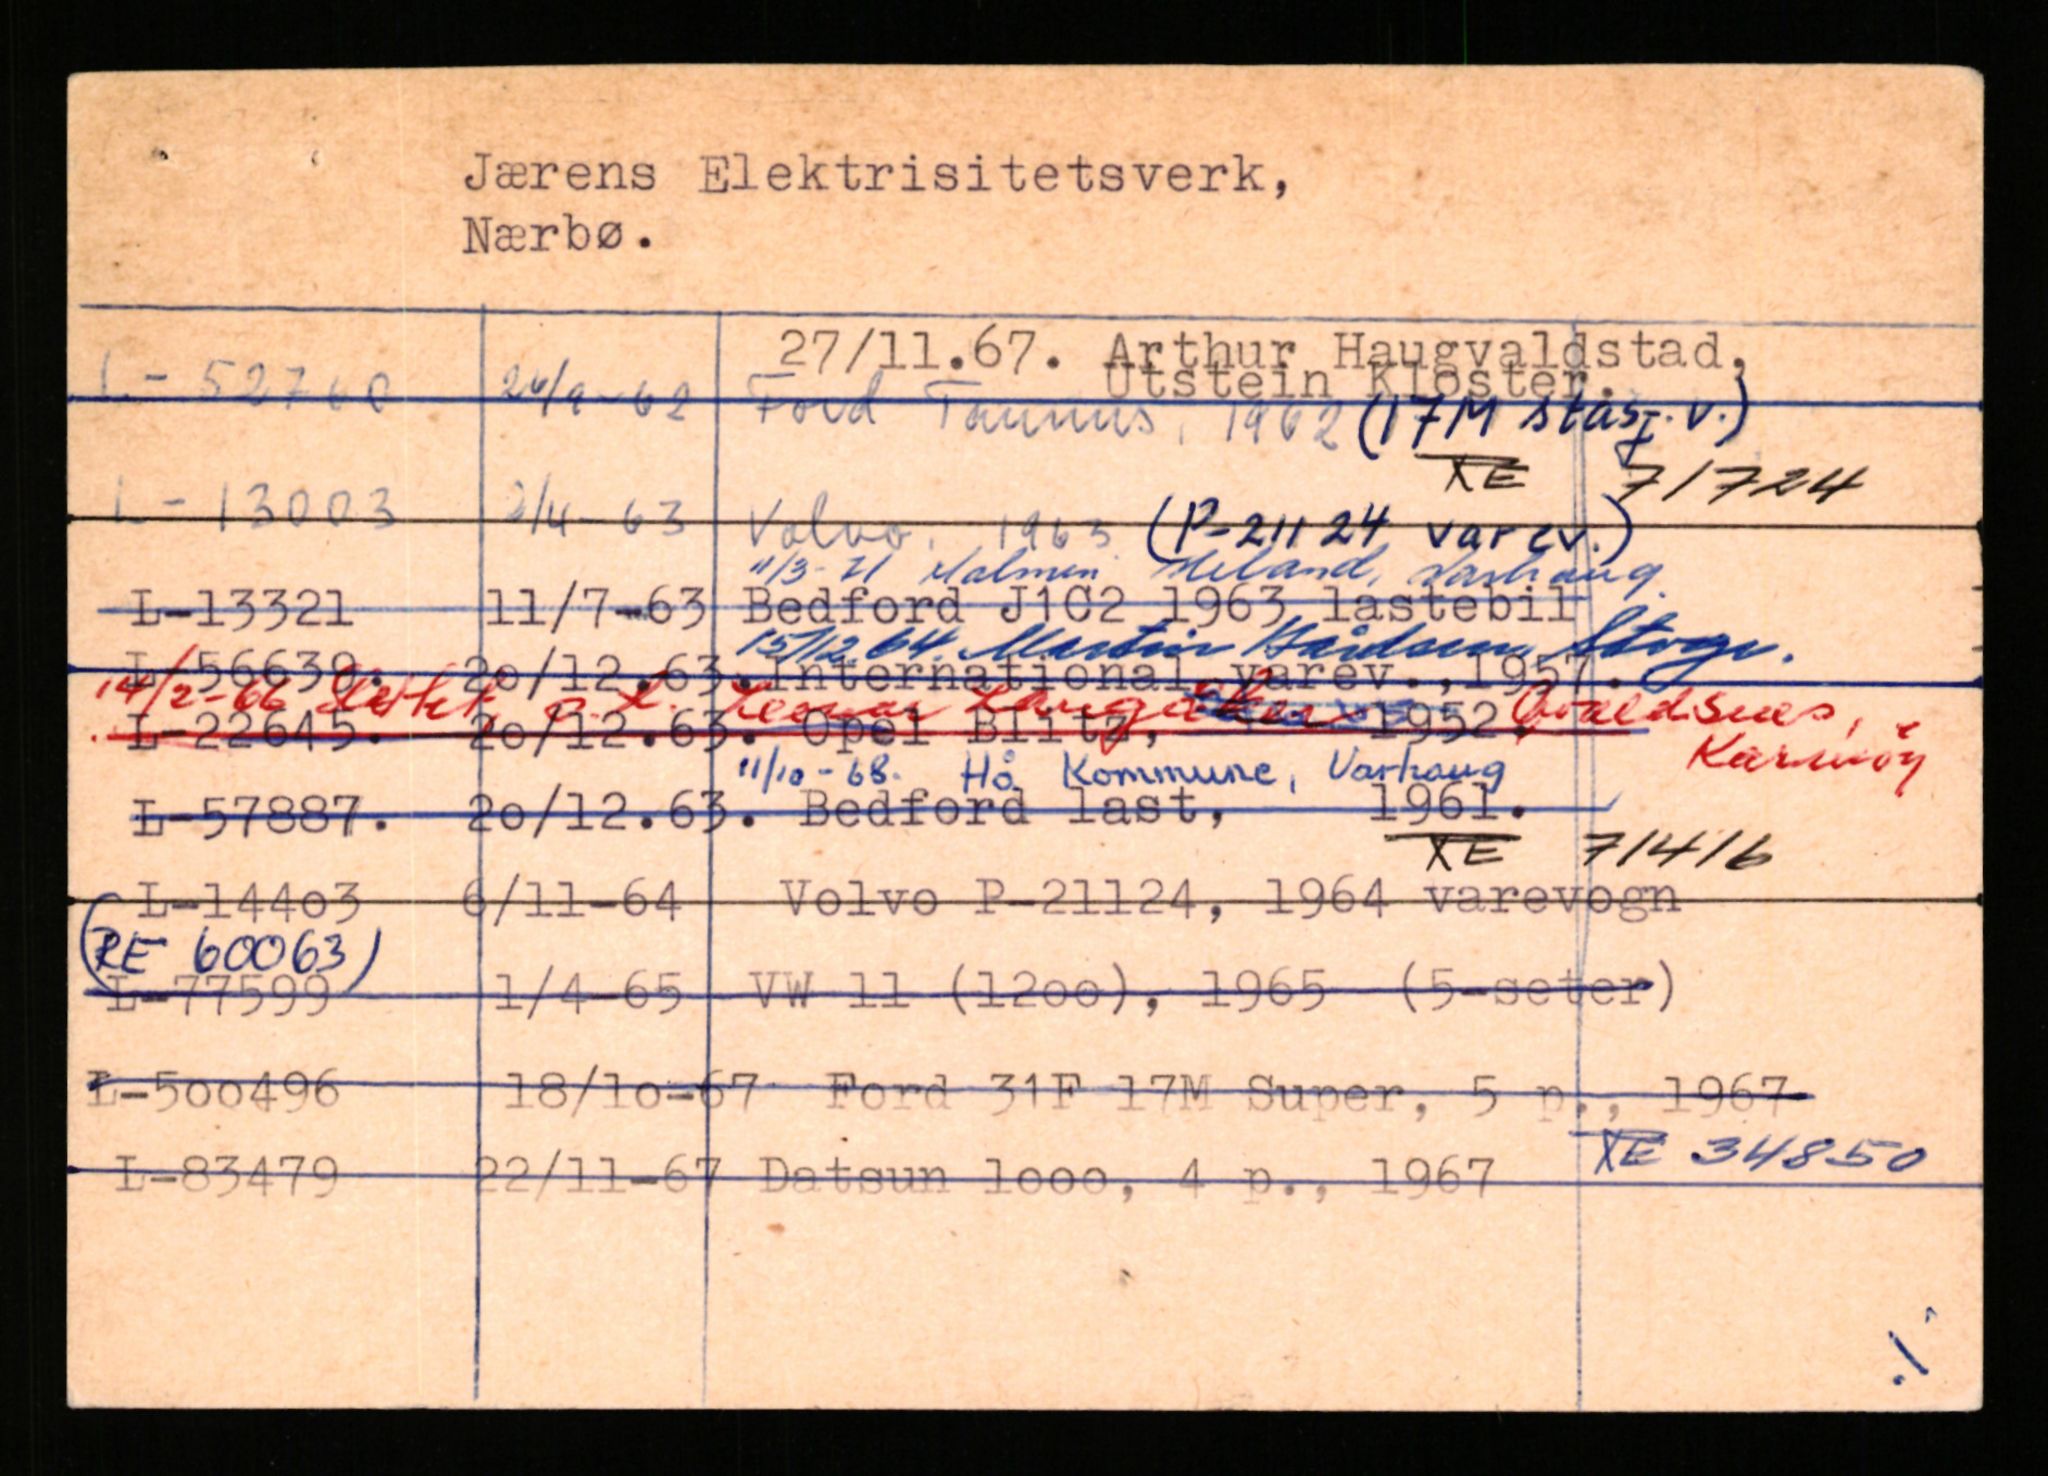 Jærens Elektrisitetsverk,
Nærbø.
27/11.67. Arthur Haugvaldstad,
Utstein Kloster.
L-52760 26/9-62 Ford Taunus, 1962 (17M stasj.v.)
XE 71724
L-13003 2/4-63 Volvo, 1963 (P-21124 varev.)
11/3-71 Malmin Heland, Varhaug
L-13321 11/7-63 Bedford J1C2 1963 lastebil
15/12.64. Martin Stvgr.
L-56639. 20/12.63. International varev., 1957.
14/2-66 p.t. Avaldsnes,
Karmøy
L-22645. 20/12.63. Opel Blitz, 1952.
11/10-68. Hå Kommune, Varhaug
L-57887. 20/12.63. Bedford last, 1961.
XE 71416
L-14403 6/11-64 Volvo P-21124, 1964 varevogn
(RE 60063)
L-77599 1/4-65 VW 11 (1200), 1965 (5-seter)
L-500496 18/10-67 Ford 31F 17M Super, 5 p., 1967
XE 34850
L-83479 22/11-67 Datsun 1000, 4 p., 1967
./.